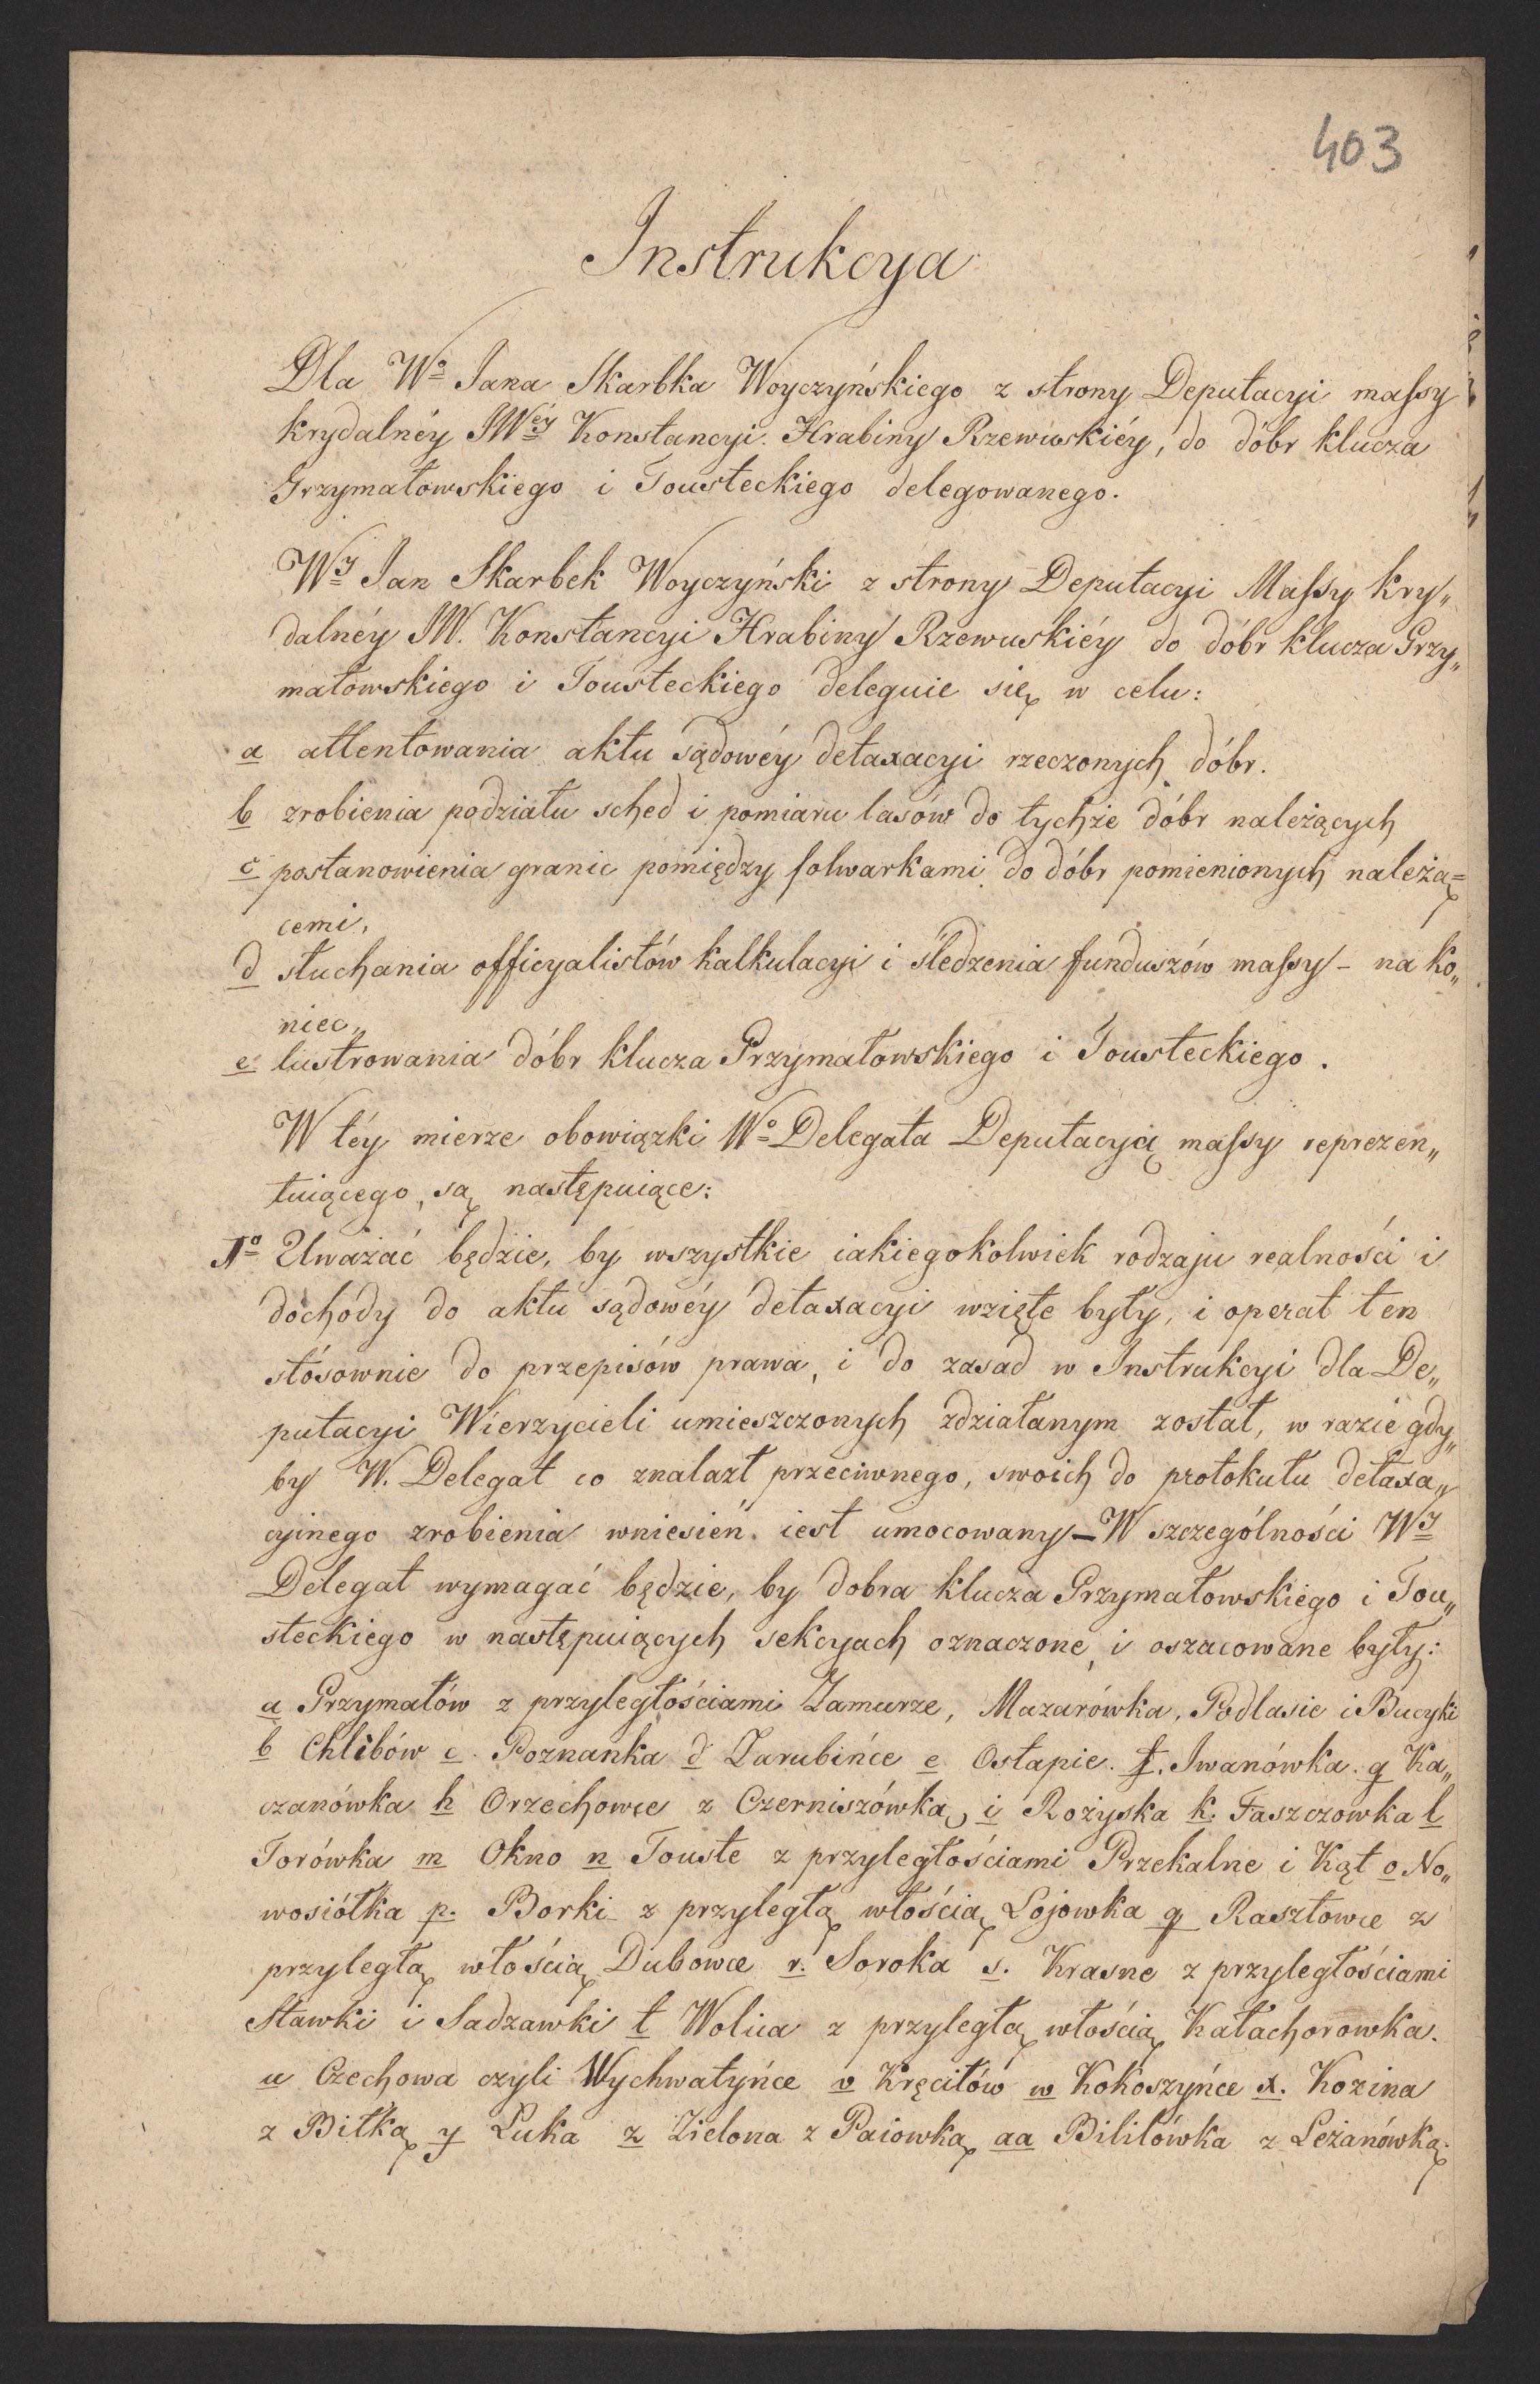 403
Instrukcya
Dla Wo Jana Skarbka Woyczyńskiego z strony Deputacyi massy
krydalnéy JWéy Konstancyi Hrabiny Rzewuskiéy, do dóbr klucza
Grzymałowskiego i Tousteckiego delegowanego.
Wy Jan Skarbek Woyczyński z strony Deputacyi Massy kry„
dalnéy JW. Konstancyi Hrabiny Rzewuskiéy do dóbr klucza Grzy„
małowskiego i Tousteckiego deleguie się w celu:
a attentowania aktu sądowéy detaxacyi rzeczonych dóbr.
b zrobienia podziału sched i pomiaru lasów do tychże dóbr należących
c postanowienia granic pomiędzy folwarkami do dóbr pomienionych należą=
cemi,
d słuchania officyalistów kalkulacyi i śledzenia funduszów massy – na ko„
niec„
e lustrowania dóbr klucza Grzymałowskiego i Tousteckiego.
W téy mierze obowiązki Wo Delegata Deputacyią massy reprezen„
tuiącego, są następuiące:
1o Uważać będzie, by wszystkie iakiegokolwiek rodzaju realności i
dochody do aktu sądowéy detaxacyi wzięte były, i operat ten
stósownie do przepisów prawa, i do zasad w Instrukcyi dla De„
putacyi Wierzycieli umieszczonych zdziałanym został, w razie gdy„
by W. Delegat co znalazł przeciwnego, swoich do protokułu detaxa„
cyinego zrobienia wniesień iest umocowany – W szczególności Wy
Delegat wymagać będzie, by dobra klucza Grzymałowskiego i Tou„
steckiego w następuiących sekcyach oznaczone, i oszacowane były:
a Grzymałów z przyległościami Zamurze, Mazarówka, Podlasie i Bucyki
b Chlibów c. Poznanka d Zarubińce e Ostapie. f. Iwanówka. g Ka„
czanówka h Orzechowce z Czerniszówką, i Rożyska k. Faszczowka l
Torówka m Okno n Touste z przyległościami Przekalne i Kąt o No„
wosiółka p. Borki z przyległą włością Łojowka q Rasztowce z
przyległą włością Dubowce r. Soroka s. Krasne z przyległościami
Stawki i Sadzawki t Wolica z przyległą włością Kałachorowka.
u Czechowa czyli Wychwatyńce v Kręciłów w Kokoszyńce x. Kozina
z Bitką y Łuka z Zielona z Paiowką aa Biliłówka z Leżanówką.